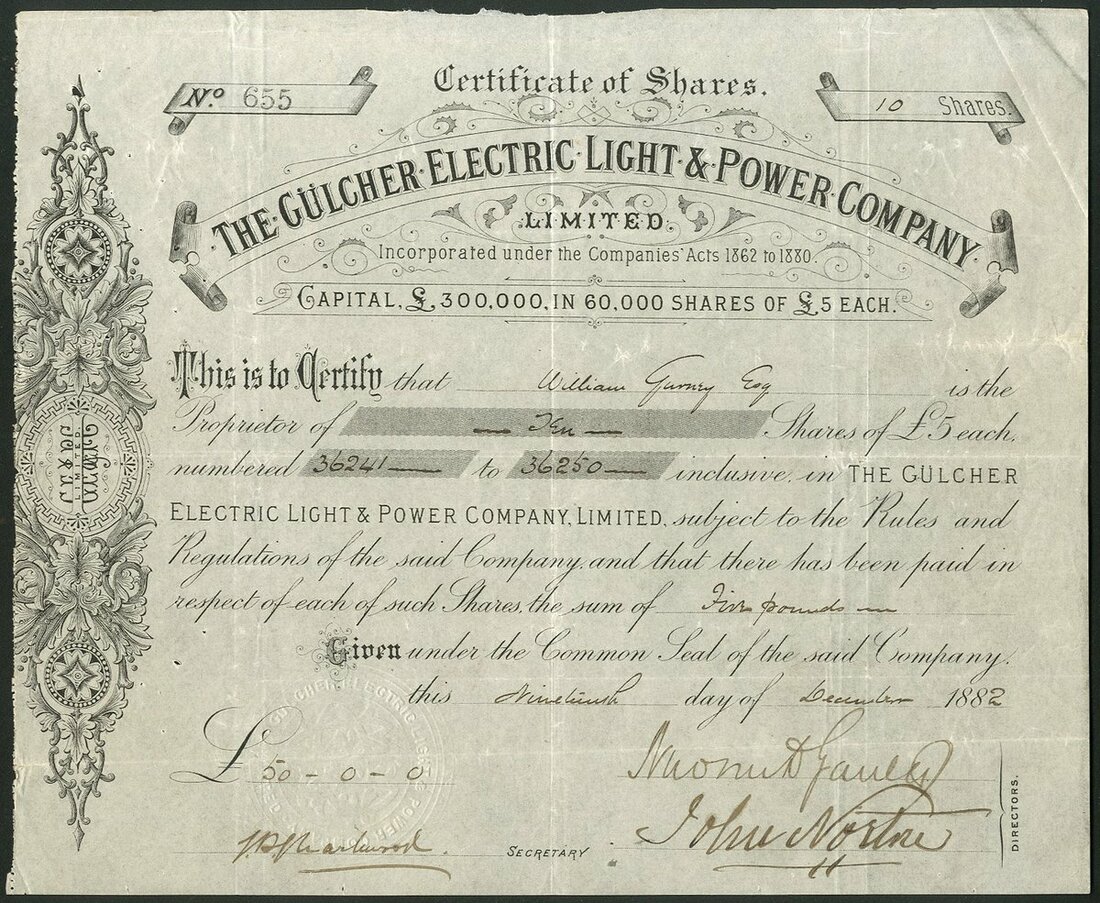 Certificate of Shares.
No. 655
10 Shares.
THE GÜLCHER ELECTRIC LIGHT & POWER COMPANY
LIMITED.
Incorporated under the Companies' Acts 1862 to 1880.
CAPITAL, £300,000, IN 60,000 SHARES OF £5 EACH.
This is to Certify that William Gurney Esq is the
Proprietor of — Ten — Shares of £5 each,
numbered 36241 — to 36250 — inclusive, in THE GÜLCHER
ELECTRIC LIGHT & POWER COMPANY, LIMITED, subject to the Rules and
Regulations of the said Company, and that there has been paid in
respect of each of such Shares, the sum of Five pounds —
Given under the Common Seal of the said Company.
this Nineteenth day of December 1882
£50-0-0
John
SECRETARY
DIRECTORS.
LIMITED